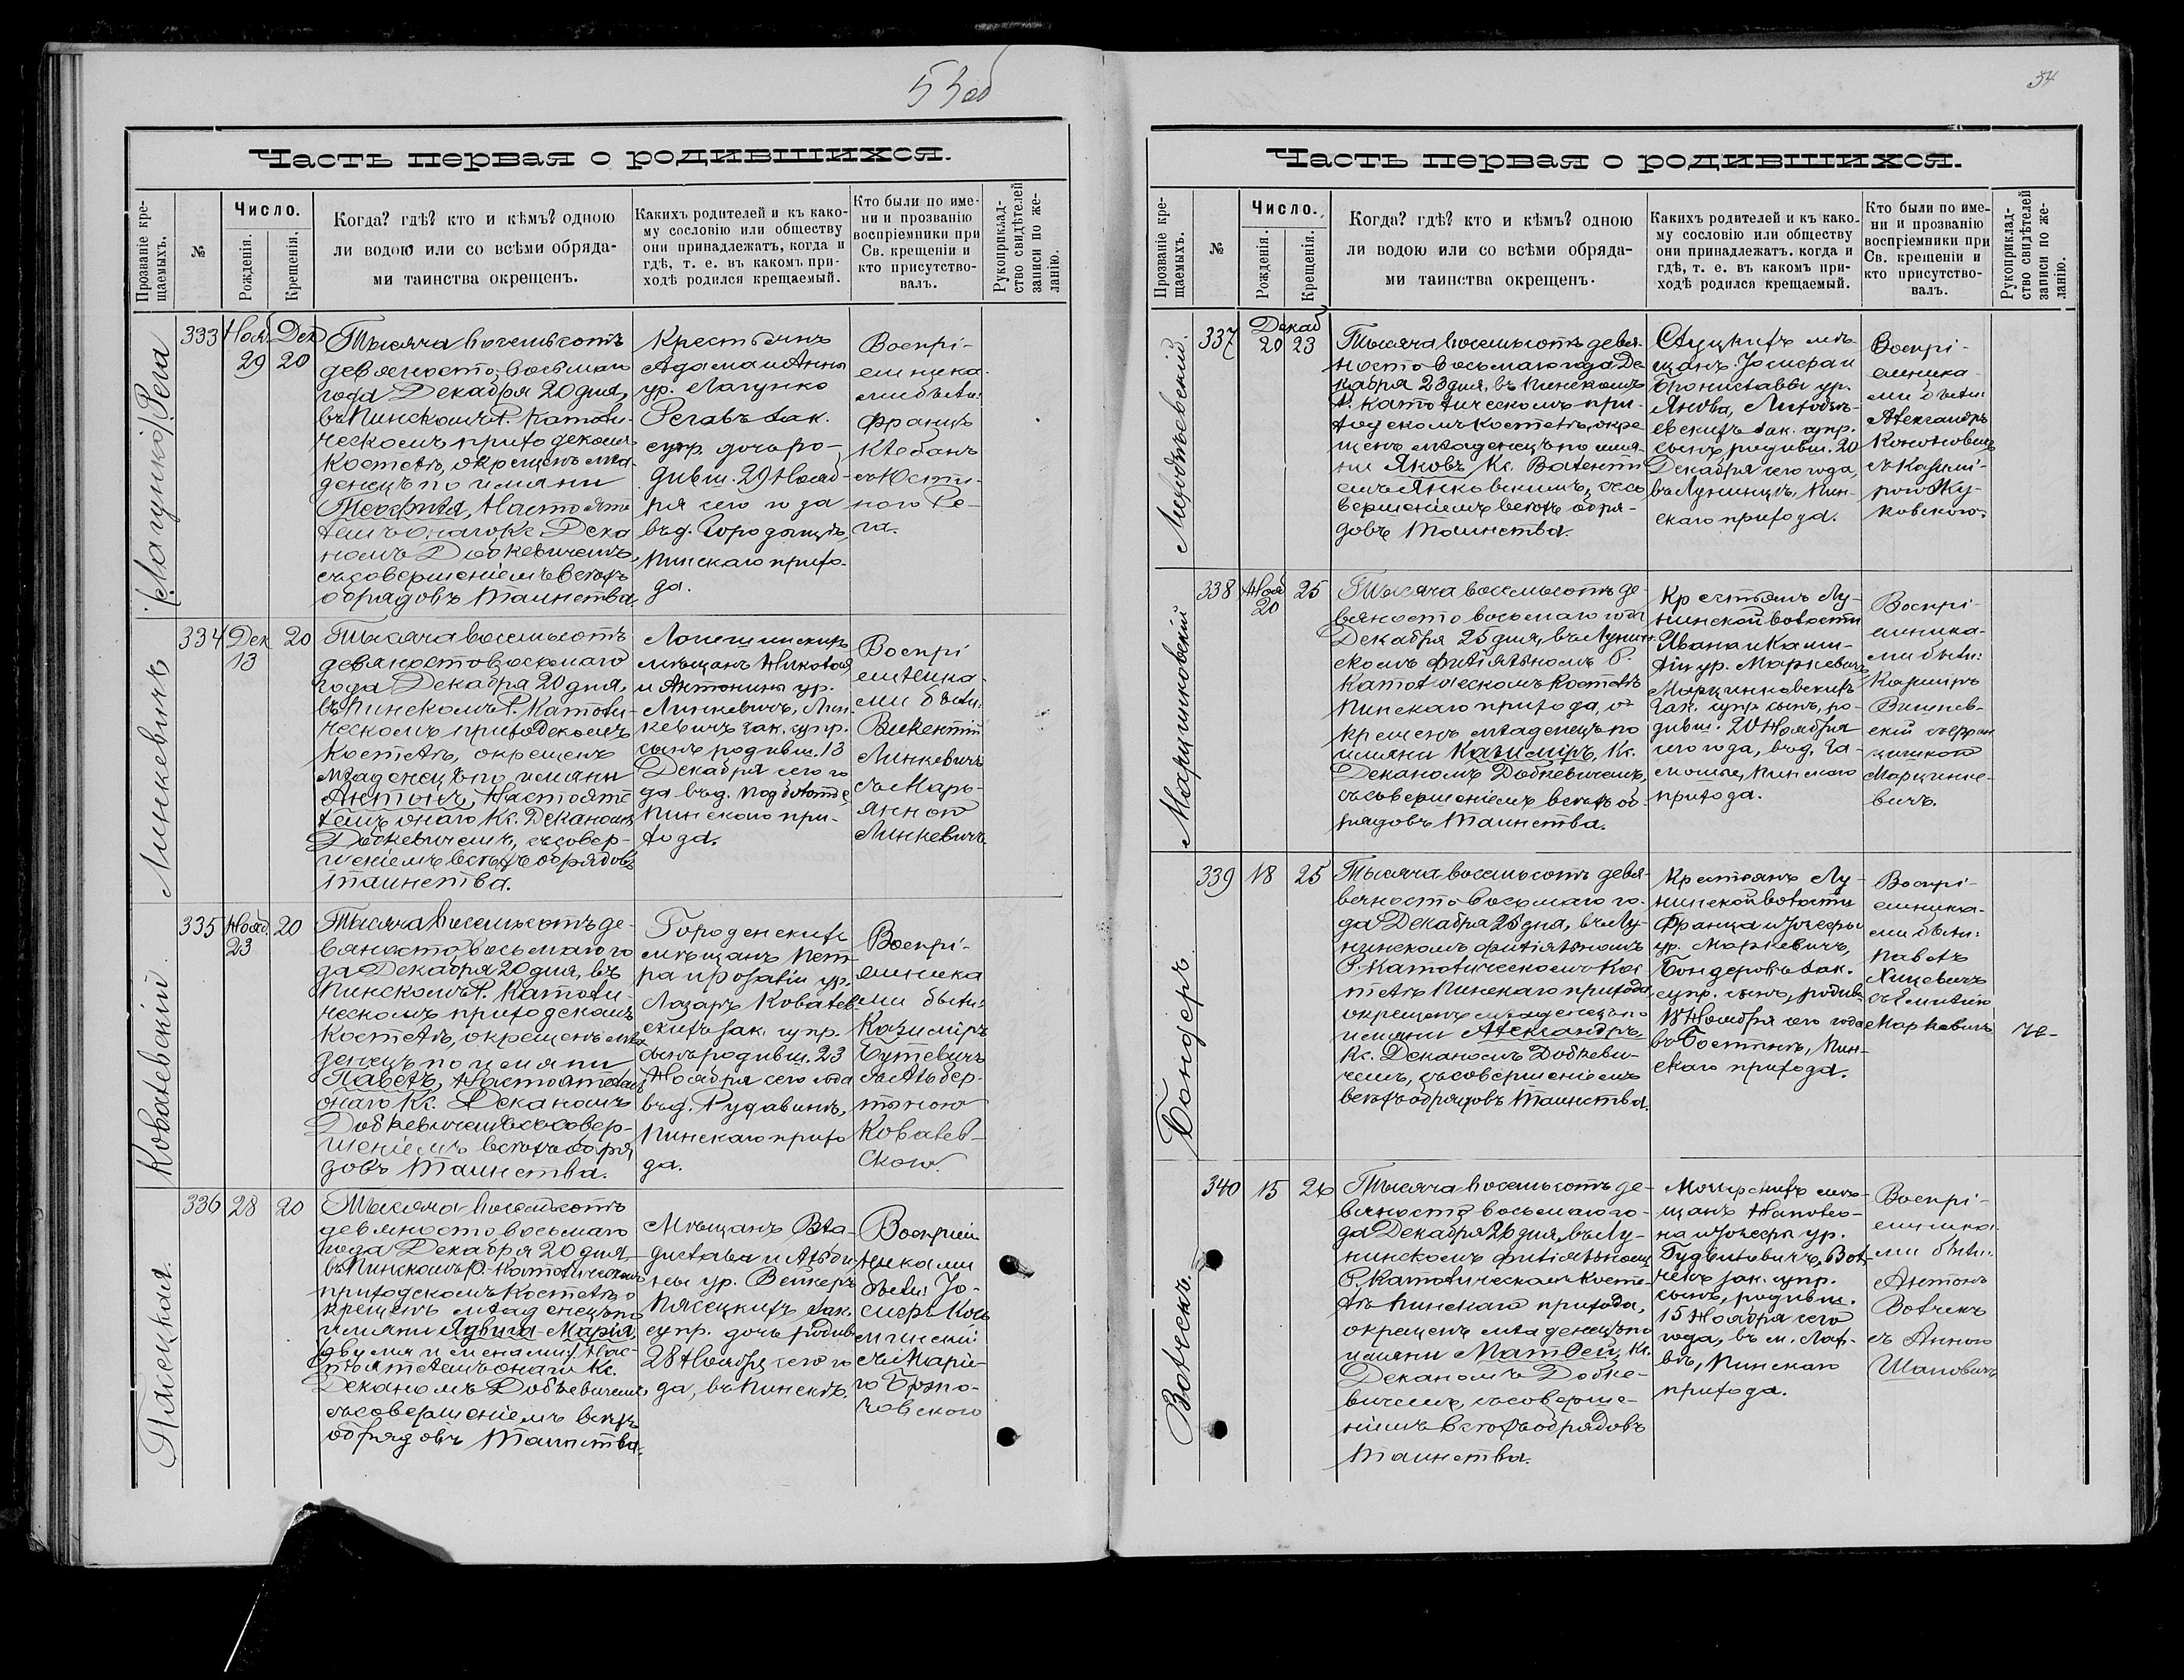 53 об
Часть первая о родившихся.
Прозваніе кре-
щаемыхъ.
№
Число.
Рожденія.
Крещенія.
Когда? гдѣ? кто и кѣмъ? одною
ли водою или со всѣми обряда-
ми таинства окрещенъ.
Какихъ родителей и къ како-
му сословію или обществу
они принадлежатъ, когда и
гдѣ, т. е. въ какомъ при-
ходѣ родился крещаемый.
Кто были по име-
ни и прозванію
воспріемники при
Св. крещеніи и
кто присутство-
валъ.
Рукоприклад-
ство свидѣтелей
записи по же-
ланію.
Лагунко Рега
333
Нояб. 29
Дек 20
Тысяча восемьсотъ
девяносто восьмаго
года Декабря 20 дня,
въ Пинскомъ Р. Католи-
ческомъ приходскомъ
костелѣ, окрещенъ мла-
денецъ по имяни
Теофиля, Настояте-
лемъ онаго Кс. Дека
номъ Добкевичемъ,
съ совершеніемъ всѣхъ
обрядовъ Таинства.
Крестьянъ
Адама и Анны
ур. Лагунко
Регавъ зак.
супр. дочь ро-
дивш. 29 Нояб-
ря сего года
въ д. Городищѣ,
Пинскаго прихо-
да.
Воспрі-
емника-
ми были:
Францъ
Клебанъ
съ Юсти-
ною Ре-
га.
Линкевичъ
334
Дек 13
20
Тысяча восемьсотъ
девяносто восьмаго
года Декабря 20 дня,
въ Пинскомъ Р. Католи-
ческомъ приходскомъ
костелѣ, окрещенъ
младенецъ по имяни
Антонъ, Настояте
лемъ онаго Кс. Деканомъ
Добкевичемъ, съ совер-
шеніемъ всѣхъ обрядовъ
Таинства.
Логишинскихъ
мѣщанъ Николая
и Антонины ур.
Линкевичъ, Лин-
кевичъ зак. супр.
сынъ родивш. 13
Декабря сего го
да въ д. Подболотье,
Пинскаго при-
хода.
Воспрі
емника-
ми были:
Викентій
Линкевичъ
съ Марь-
янной
Линкевичъ.
Ковалевскій.
335
Нояб. 23
20
Тысяча восемьсотъ де-
вяносто восьмаго го
да Декабря 20 дня, въ
Пинскомъ Р. Католи
ческомъ приходскомъ
костелѣ, окрещенъ мла
денецъ по имяни
Павелъ, Настоятелемъ
онаго Кс. Деканомъ
Добкевичемъ съ совер-
шеніемъ всѣхъ обря
довъ Таинства.
Городенскихъ
мѣщанъ Пет-
ра и Розаліи ур.
Лазаръ Ковалев-
скихъ зак. супр.
сынъ родивш. 23
Ноября сего года
въ д. Рудавинѣ,
Пинскаго прихо
да.
Воспрі-
емника
ми были:
Казиміръ
Бутевичъ
съ Альбер-
тиною
Ковалев-
скою.
Плясецкая.
336
28
20
Тысяча восемьсотъ
девяносто восьмаго
года Декабря 20 дня
въ Пинскомъ Р. Католическомъ
приходскомъ костелѣ о
крещенъ младенецъ по
имяни Ядвига-Марія,
двумя именами, Нас-
тоятелемъ онаго Кс.
Деканомъ Добкевичемъ,
съ совершеніемъ всѣхъ
обрядовъ Таинства.
Мѣщанъ Вла-
дислава и Альби
ны ур. Вейкеръ
Плясецкихъ зак.
супр. дочь родив.
28 Ноября сего го
да, въ Пинскѣ.
Воспріем
никами
были: Іо-
сифъ
съ Марі-
го
54
Часть первая о родившихся.
Прозваніе кре-
щаемыхъ.
№
Число.
Рожденія.
Крещенія.
Когда? гдѣ? кто и кѣмъ? одною
ли водою или со всѣми обряда-
ми таинства окрещенъ.
Какихъ родителей и къ како-
му сословію или обществу
они принадлежатъ. когда и
гдѣ, т. е. въ какомъ при-
ходѣ родился крещаемый.
Кто были по име-
ни и прозванію
воспріемники при
Св. крещеніи и
кто присутство-
валъ.
Рукоприклад-
ство свидѣтелей
записи по же-
ланію.
337
Декаб
20 23
Тысяча восемьсотъ девя-
носто восьмаго года Де
кабря 23 дня, въ Пинскомъ
Р. католическомъ при-
ходскомъ костелѣ, окре
щенъ младенецъ по имя-
ни Яковъ Кс. Валенти
емъ Янковскимъ, съ со
вершеніемъ всѣхъ обря-
довъ Таинства.
Слуцкихъ мѣ-
щанъ Іосифа и
Брониславы ур.
евскихъ зак. супр.
сынъ родивш. 20
Декабря сего года,
въ Лунинцѣ, Пин-
скаго прихода.
Воспрі-
емника-
ми были:
Александръ
Кононовичъ
съ Казимі-
рою Жу-
ковскою.
Марцинковскій
338
Нояб 20
25
Тысяча восемьсотъ де
вяносто восьмаго года
Декабря 25 дня, въ Лунин-
скомъ филіяльномъ Р.
Католическомъ костелѣ
Пинскаго прихода, о-
крещенъ младенецъ по
имяни Казиміръ, Кс.
Деканомъ Добкевичемъ,
съ совершеніемъ всѣхъ об
рядовъ Таинства.
Крестьянъ Лу-
нинской волости
Ивана и Ками-
ліи ур. Маркевичъ
Марцинковскихъ
зак. супр. сынъ, ро-
дивш. 20 Ноября
сего года, въ д. Га-
Пинскаго
прихода.
Воспрі-
емника-
ми были:
Казиміръ
Вишнев-
скій съ Фран
цишкой
Марцинке-
вичъ.
Бондеръ
339
18
25
Тысяча восемьсотъ девя-
вяносто восьмаго го-
да Декабря 25 дня, въ Лу-
нинскомъ филіяльномъ
Р. Католическомъ Кос
телѣ Пинскаго прихода,
окрещенъ младенецъ по
имяни Александръ,
Кс. Деканомъ Добкеви-
чемъ, съ совершеніемъ
всѣхъ обрядовъ Таинства.
Крестьянъ Лу-
нинской волости
Франца и Іозефы
ур. Маркевичъ,
Бондеровъ зак.
супр. сынъ, родив.
18 Ноября сего года
въ Бостынѣ, Пин-
скаго прихода.
Воспрі-
емника-
ми были:
Павелъ
Хицевичъ
съ Эмиліею
Маркевичъ
Волчекъ.
340
15
26
Тысяча восемьсотъ де-
вяносто восьмаго го-
да Декабря 26 дня, въ Лу-
нинскомъ филіяльномъ
Р. Католическомъ Косте-
лѣ Пинскаго прихода,
окрещенъ младенецъ по
имяни Матвей, Кс.
Деканомъ Добке-
вичемъ, съ соверше-
ніемъ всѣхъ обрядовъ
Таинства.
Мозырскихъ мѣ-
щанъ Наполео-
на и Іозефы ур.
Гудвиловичъ, Вол-
чекъ зак. супр.
сынъ, родивш.
15 Ноября сего
года, въ м. Лах-
вѣ, Пинскаго
прихода.
Воспрі-
емника-
ми были:
Антонъ
Волчекъ
съ Анною
Шаповичъ